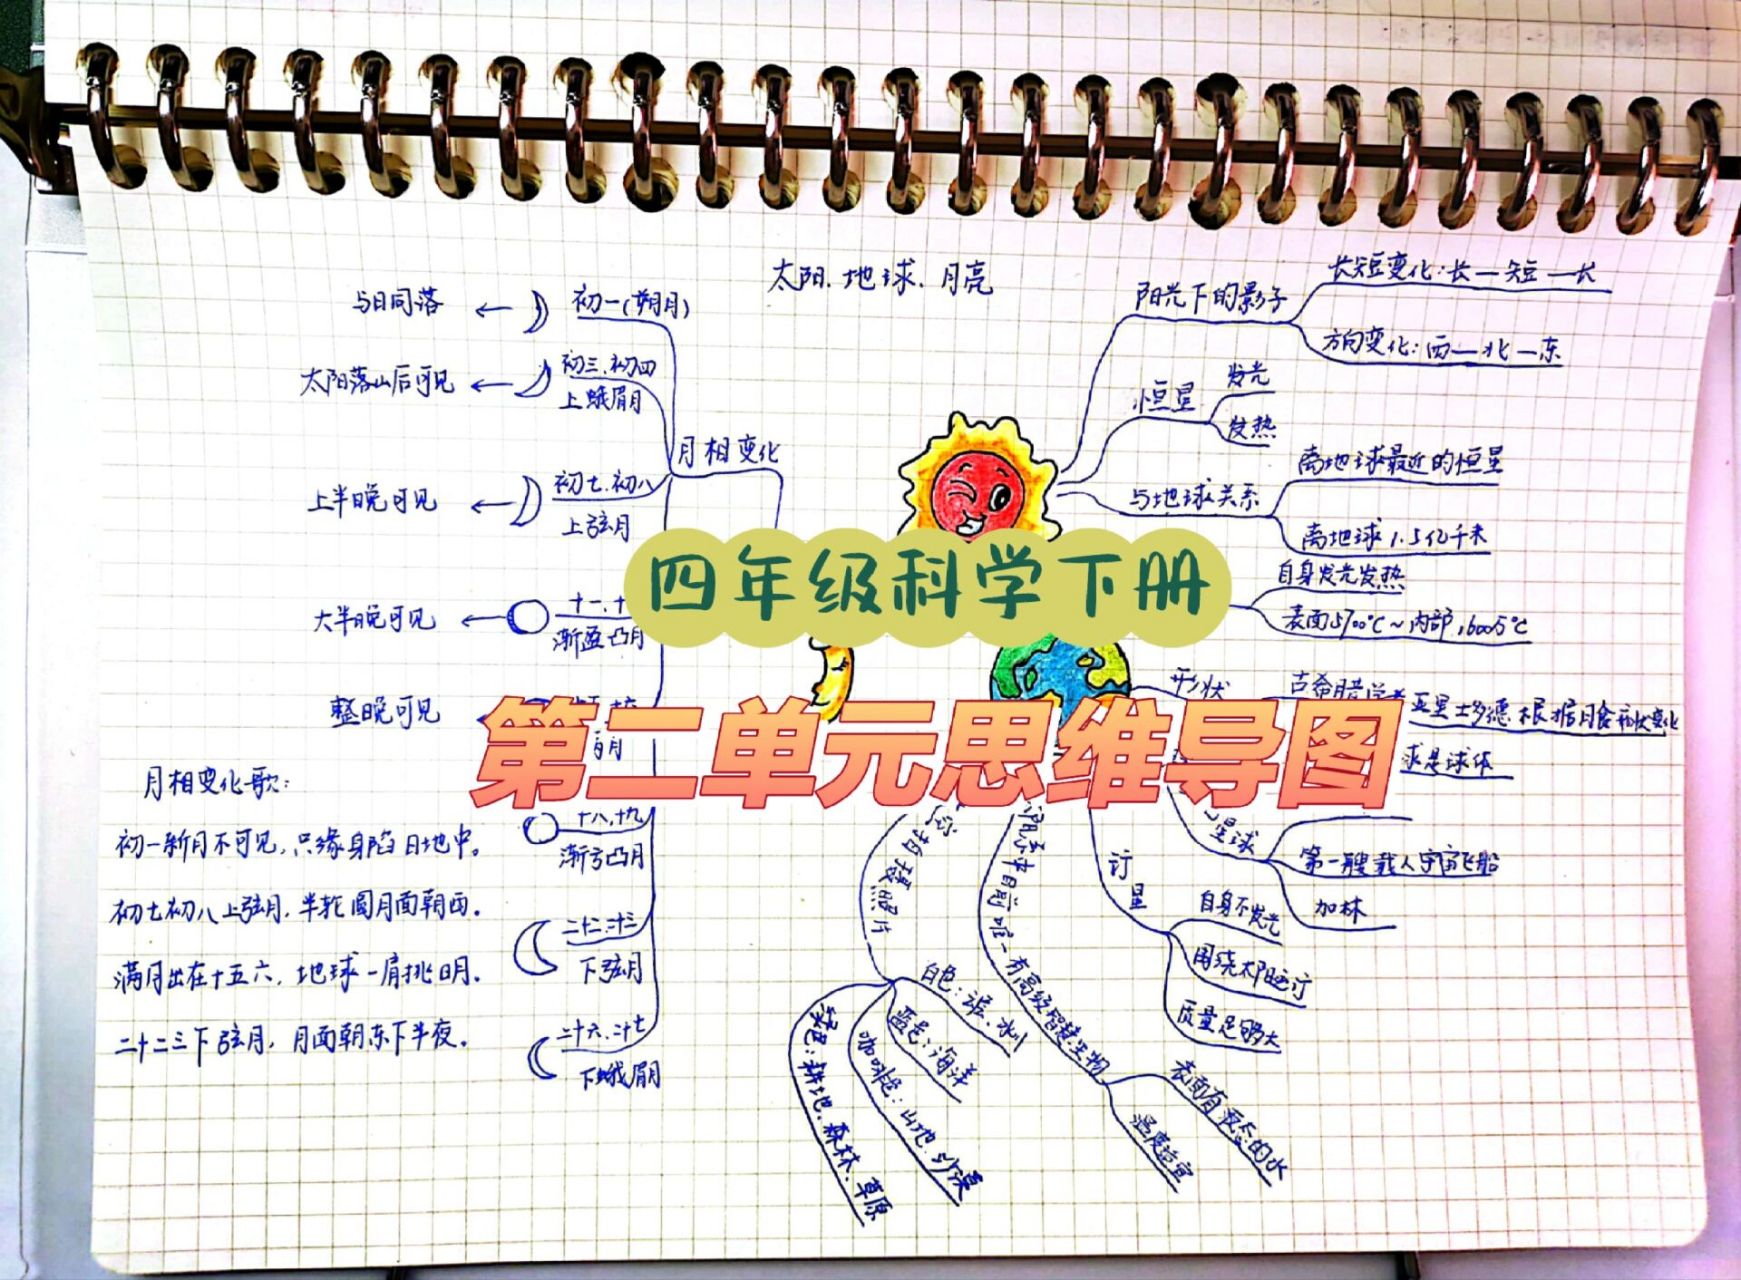 太阳、地球、月亮
四年级科学下册
第二单元思维导图
月相变化
初一(朔月)
与日同落
初三、初四
上蛾眉月
太阳落山后可见
初七、初八
上弦月
上半晚可见
十一、十
渐盈凸月
大半晚可见
整晚可见
十八、十九
渐亏凸月
二十二、二十三
下弦月
二十六、二十七
下蛾眉月
月相变化歌:
初一新月不可见,只缘身陷日地中。
初七初八上弦月,半轮圆月面朝西。
满月出在十五六,地球一肩挑日月。
二十二三下弦月,月面朝东下半夜。
阳光下的影子
长短变化:长—短—长
方向变化:西—北—东
恒星
发光
发热
与地球关系
离地球最近的恒星
离地球1.5亿千米
自身发光发热
形状
古希腊学者亚里士多德根据月食形状变化
球是球体
星球
第一艘载人宇宙飞船
加林
行星
自身不发光
围绕太阳运行
质量足够大
目前唯一有高级智慧生物
表面有液态的水
温度适宜
拍摄照片
白色:云层、冰川
蓝色:海洋
咖啡色:山地、沙漠
绿色:耕地、森林、草原